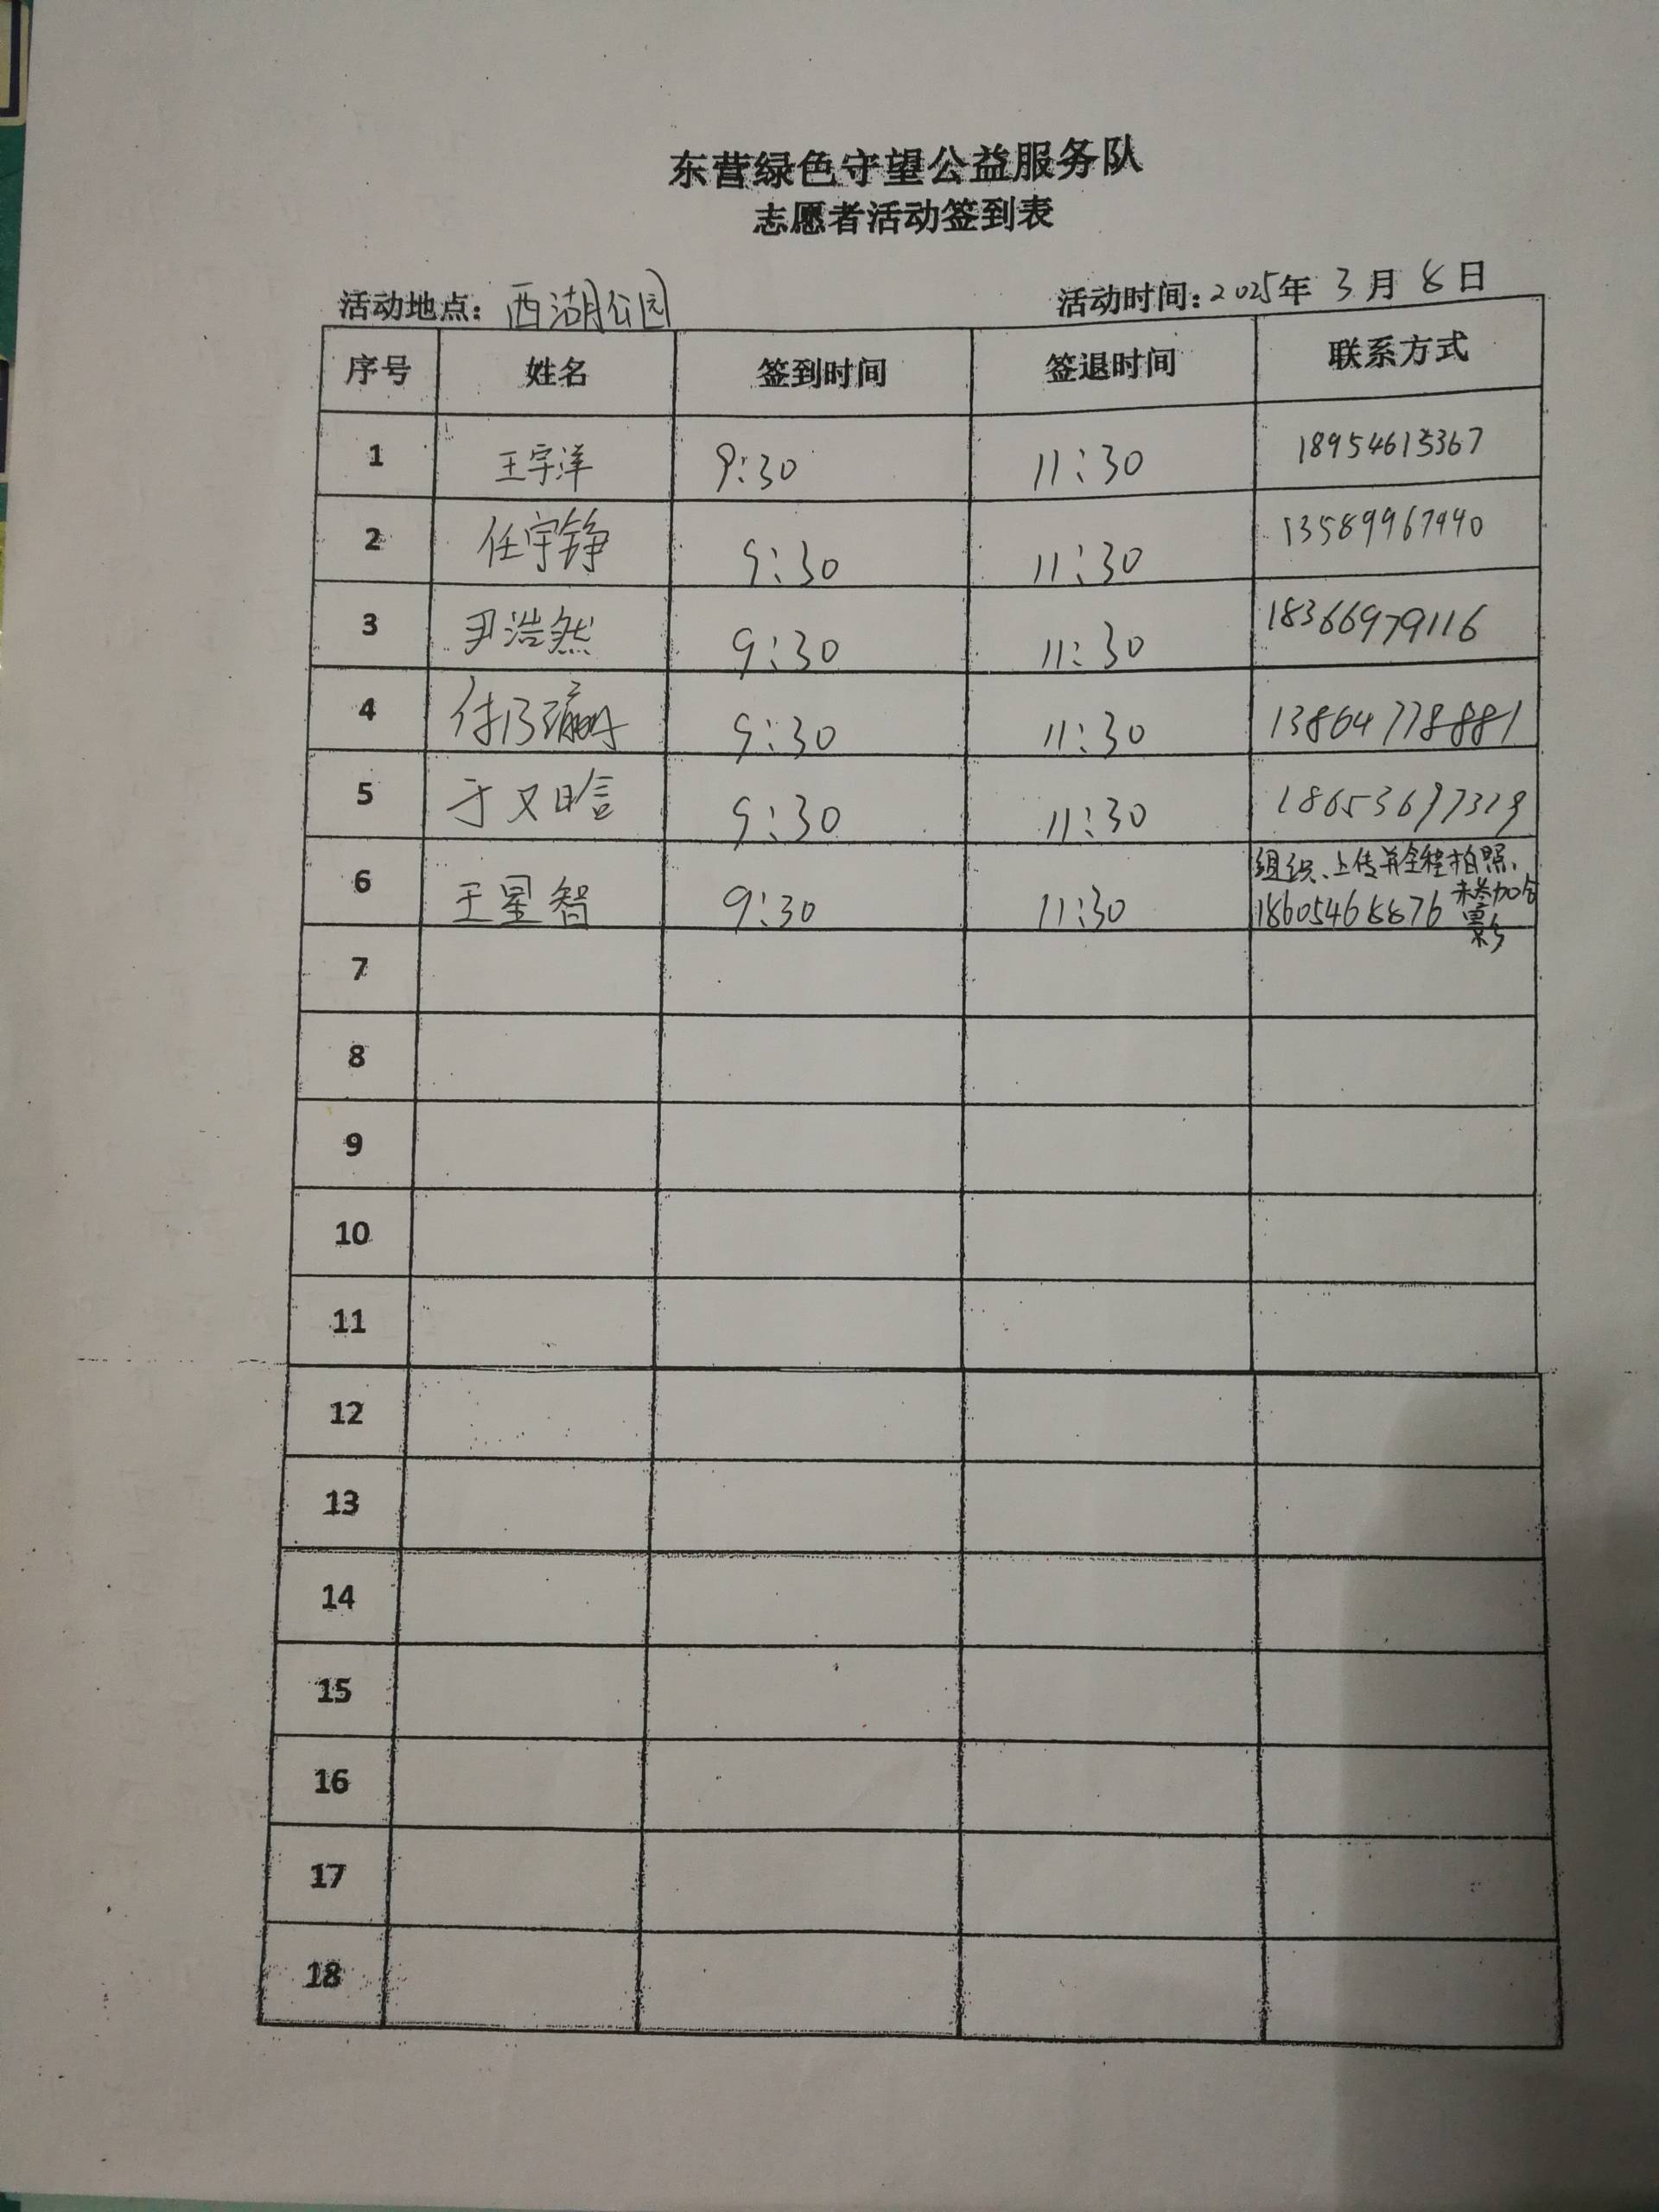 东营绿色守望公益服务队
志愿者活动签到表
活动地点：西湖公园 活动时间：2025年 3月 8日
序号 姓名 签到时间 签退时间 联系方式
1 王宇洋 9:30 11:30 18954615367
2 任宇铮 9:30 11:30 13589967990
3 尹浩然 9:30 11:30 18366979116
4 9:30 11:30 13864778881
5 于又晗 9:30 11:30
6 王星智 9:30 11:30 组织、上传并全程拍照、未参加合影 18605468876
7
8
9
10
11
12
13
14
15
16
17
18